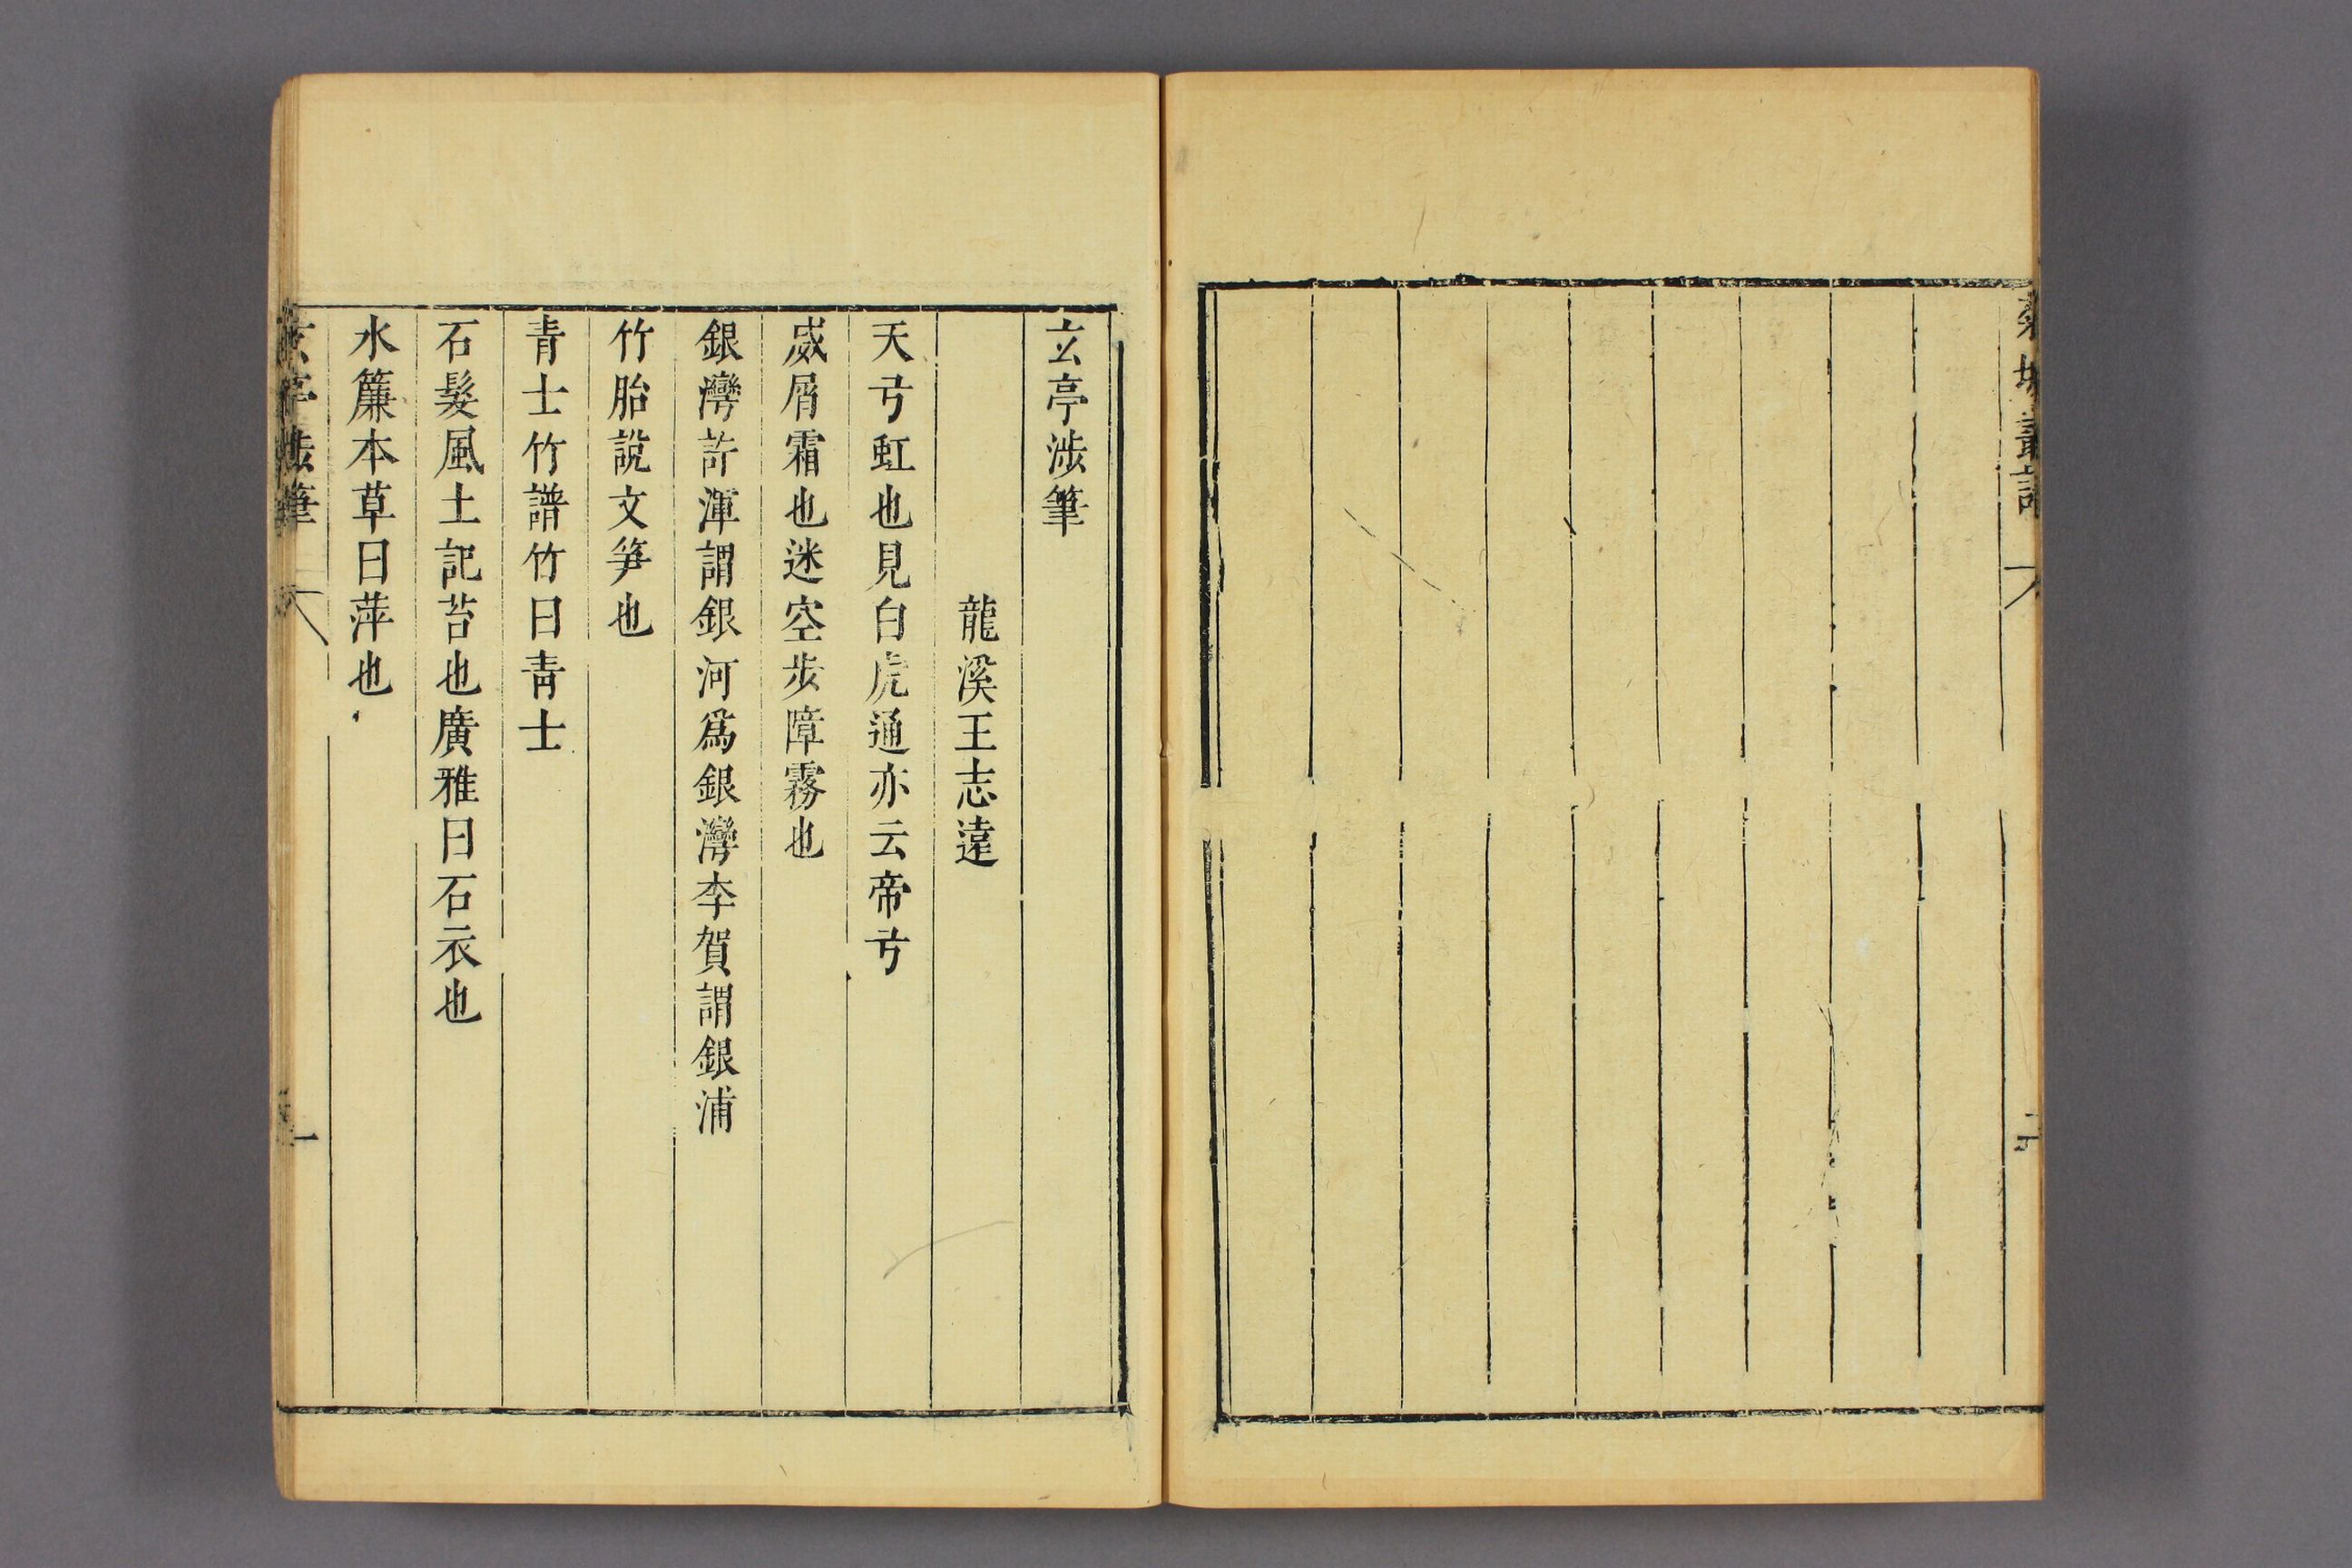 叢記
二
玄亭涉筆
龍溪王志遠
天弓虹也見白虎通亦云帝弓
威屑霜也迷空步障霧也
銀灣許渾謂銀河爲銀灣李賀謂銀浦
竹胎說文笋也
青士竹譜竹曰青士
石髮風土記苔也廣雅曰石衣也
水簾本草曰萍也
玄亭涉筆
一